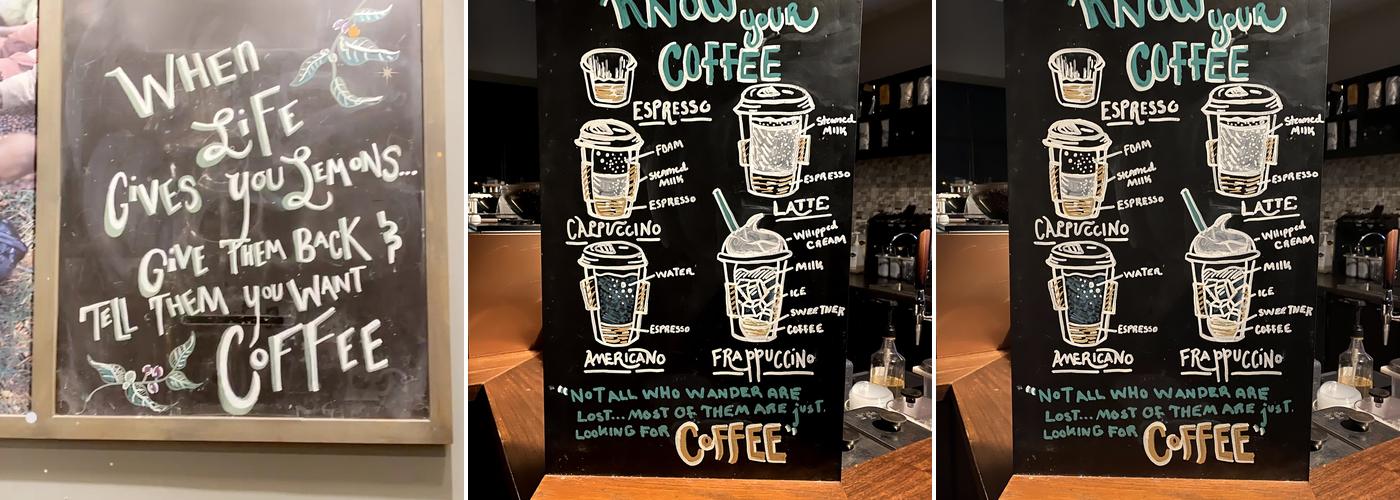 WHEN
LiFE
GiVE'S YOU LEMONS...
GiVE THEM BACK &
TELL THEM YOU WANT
COFFEE
KNOW YOUR
COFFEE
ESPRESSO
STEAMED
MILK
FOAM
STEAMED
MILK
ESPRESSO
ESPRESSO
LATTE
CAPPUCCINO
WHIPPED
CREAM
WATER
MILK
ICE
SWEETNER
ESPRESSO
COFFEE
AMERICANO
FRAPPUCCiNO
"NOT ALL WHO WANDER ARE
LOST... MOST OF THEM ARE just
LOOKING FOR COFFEE"
KNOW YOUR
COFFEE
ESPRESSO
STEAMED
MILK
FOAM
STEAMED
MILK
ESPRESSO
ESPRESSO
LATTE
CAPPUCCINO
WHIPPED
CREAM
WATER
MILK
ICE
SWEETNER
ESPRESSO
COFFEE
AMERICANO
FRAPPUCCiNO
"NOT ALL WHO WANDER ARE
LOST... MOST OF THEM ARE just
LOOKING FOR COFFEE"